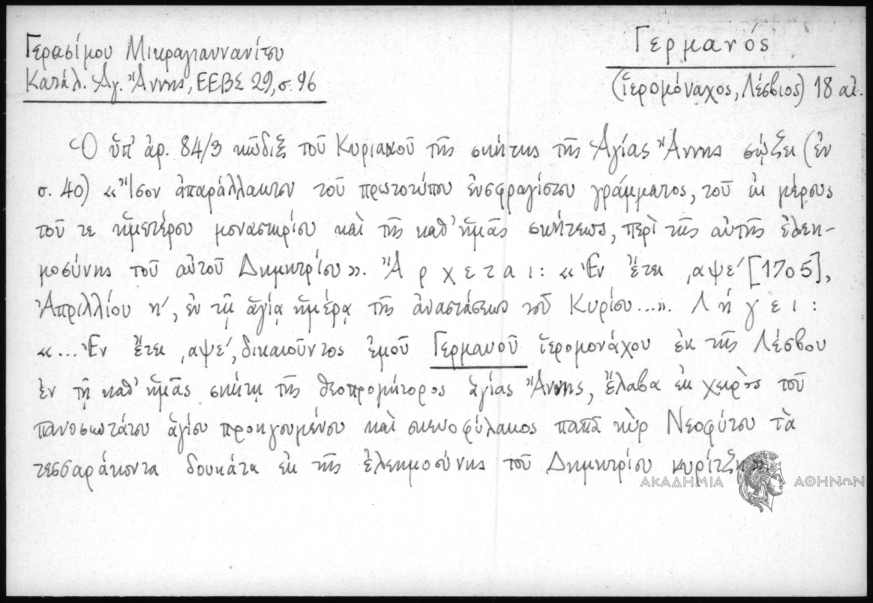 Γερασίμου Μικραγιαννανίτου
Κατάλ. Ἁγ. Ἄννης, ΕΕΒΣ 29, σ. 96
Γερμανός
(ἱερομόναχος, Λέσβιος) 18 αἰ.
Ὁ ὑπ' ἀρ. 84/3 κῶδιξ τοῦ Κυριακοῦ τῆς σκήτης τῆς Ἁγίας Ἄννης σῴζει (ἐν
σ. 40) «Ἴσον ἀπαράλλακτον τοῦ πρωτοτύπου ἐνσφραγίστου γράμματος, τοῦ ἐκ μέρους
τοῦ τε ἡμετέρου μοναστηρίου καὶ τῆς καθ' ἡμᾶς σκήτεως, περὶ τῆς αὐτῆς ἐλεη-
μοσύνης τοῦ αὐτοῦ Δημητρίου». Ἄρχεται: «Ἐν ἔτει ͵αψε' [1705],
Ἀπριλλίου η', ἐν τῇ ἁγίᾳ ἡμέρᾳ τῆς ἀναστάσεως τοῦ Κυρίου...». Λήγει:
«...Ἐν ἔτει ͵αψε', δικαιοῦντος ἐμοῦ Γερμανοῦ ἱερομονάχου ἐκ τῆς Λέσβου
ἐν τῇ καθ' ἡμᾶς σκήτῃ τῆς θεοπρομήτορος ἁγίας Ἄννης, ἔλαβα ἐκ χειρὸς τοῦ
πανοσιωτάτου ἁγίου προηγουμένου καὶ σκευοφύλακος παπᾶ κὺρ Νεοφύτου τὰ
τεσσαράκοντα δουκάτα ἐκ τῆς ἐλεημοσύνης τοῦ Δημητρίου κυρίτζη».
ΑΚΑΔΗΜΙΑ ΑΘΗΝΩΝ